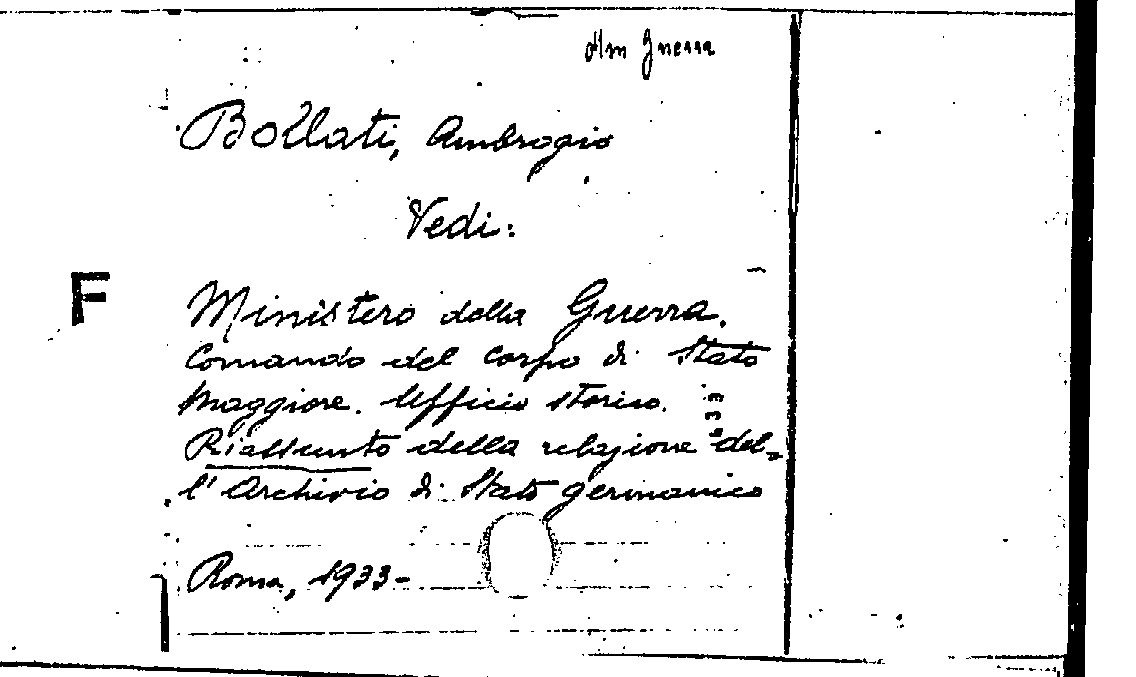 Min Guerra
Bollati, Ambrogio
Vedi:
F
Ministero della Guerra.
Comando del Corpo di Stato
Maggiore. Ufficio storico.
Riassunto della relazione del-
l'Archivio di Stato germanico
Roma, 1933-